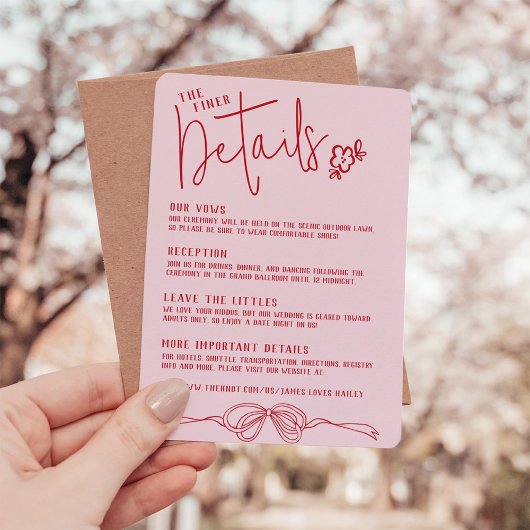 THE
FINER
Details
OUR VOWS
OUR CEREMONY WILL BE HELD ON THE SCENIC OUTDOOR LAWN,
SO PLEASE BE SURE TO WEAR COMFORTABLE SHOES!
RECEPTION
JOIN US FOR DRINKS, DINNER, AND DANCING FOLLOWING THE
CEREMONY IN THE GRAND BALLROOM UNTIL 12 MIDNIGHT.
LEAVE THE LITTLES
WE LOVE YOUR KIDDOS, BUT OUR WEDDING IS GEARED TOWARD
ADULTS ONLY, SO ENJOY A DATE NIGHT ON US!
MORE IMPORTANT DETAILS
FOR HOTELS, SHUTTLE TRANSPORTATION, DIRECTIONS, REGISTRY
INFO AND MORE, PLEASE VISIT OUR WEBSITE AT:
WWW.THEKNOT.COM/US/JAMES LOVES HAILEY